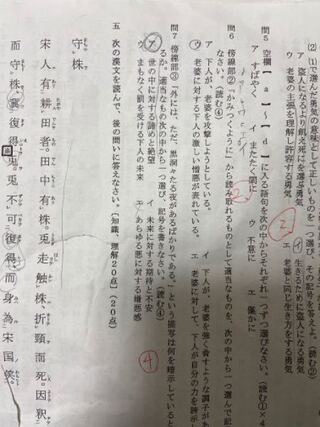 (2) (1)で選んだ勇気の意味として正しいものを一つ選び、その記号を答えよ。(読む②)
ア 盗人になるより飢え死にを選ぶ勇気
イ 生きるために盗人になる勇気
ウ 老婆の主張を理解し許容する勇気
エ 老婆と同じ生き方をする勇気
問5 空欄【a】~【d】に入る語句を次の中からそれぞれ一つずつ選びなさい。(読む①×4
ア すばやく
イ またたく間に
ウ 不意に
エ 僅かに
問6 傍線部②「かみつくように」から読み取れるものとして適当なものを、次の中から一つ選んで記
なさい。(読む④)
ア 下人が、老婆を攻撃しようとしている。
イ 下人が、老婆を強く脅すような調子があ
ウ 老婆に対する下人の激しい憎悪が表れている。
エ 老婆に対して、下人が自分の力を誇示し
問7 傍線部③「外には、ただ、黒洞々たる夜があるばかりである。」という描写は何を暗示していると
るか。適当なものを次の中から一つ選び、記号を書きなさい。(読む④)
ア 世の中に対する諦めと絶望
イ 未来に対する期待と不安
ウ まもなく罰を受ける下人の未来
エ あらゆる悪に対する嫌悪感
④
五 次の漢文を読んで、後の問いに答えなさい。(知識、理解20点)(20点)
守株
宋人有耕田者。田中有株。兎走触株、折頸而死。因釈
而守株、冀復得兎。兎不可復得、而身為宋国笑。